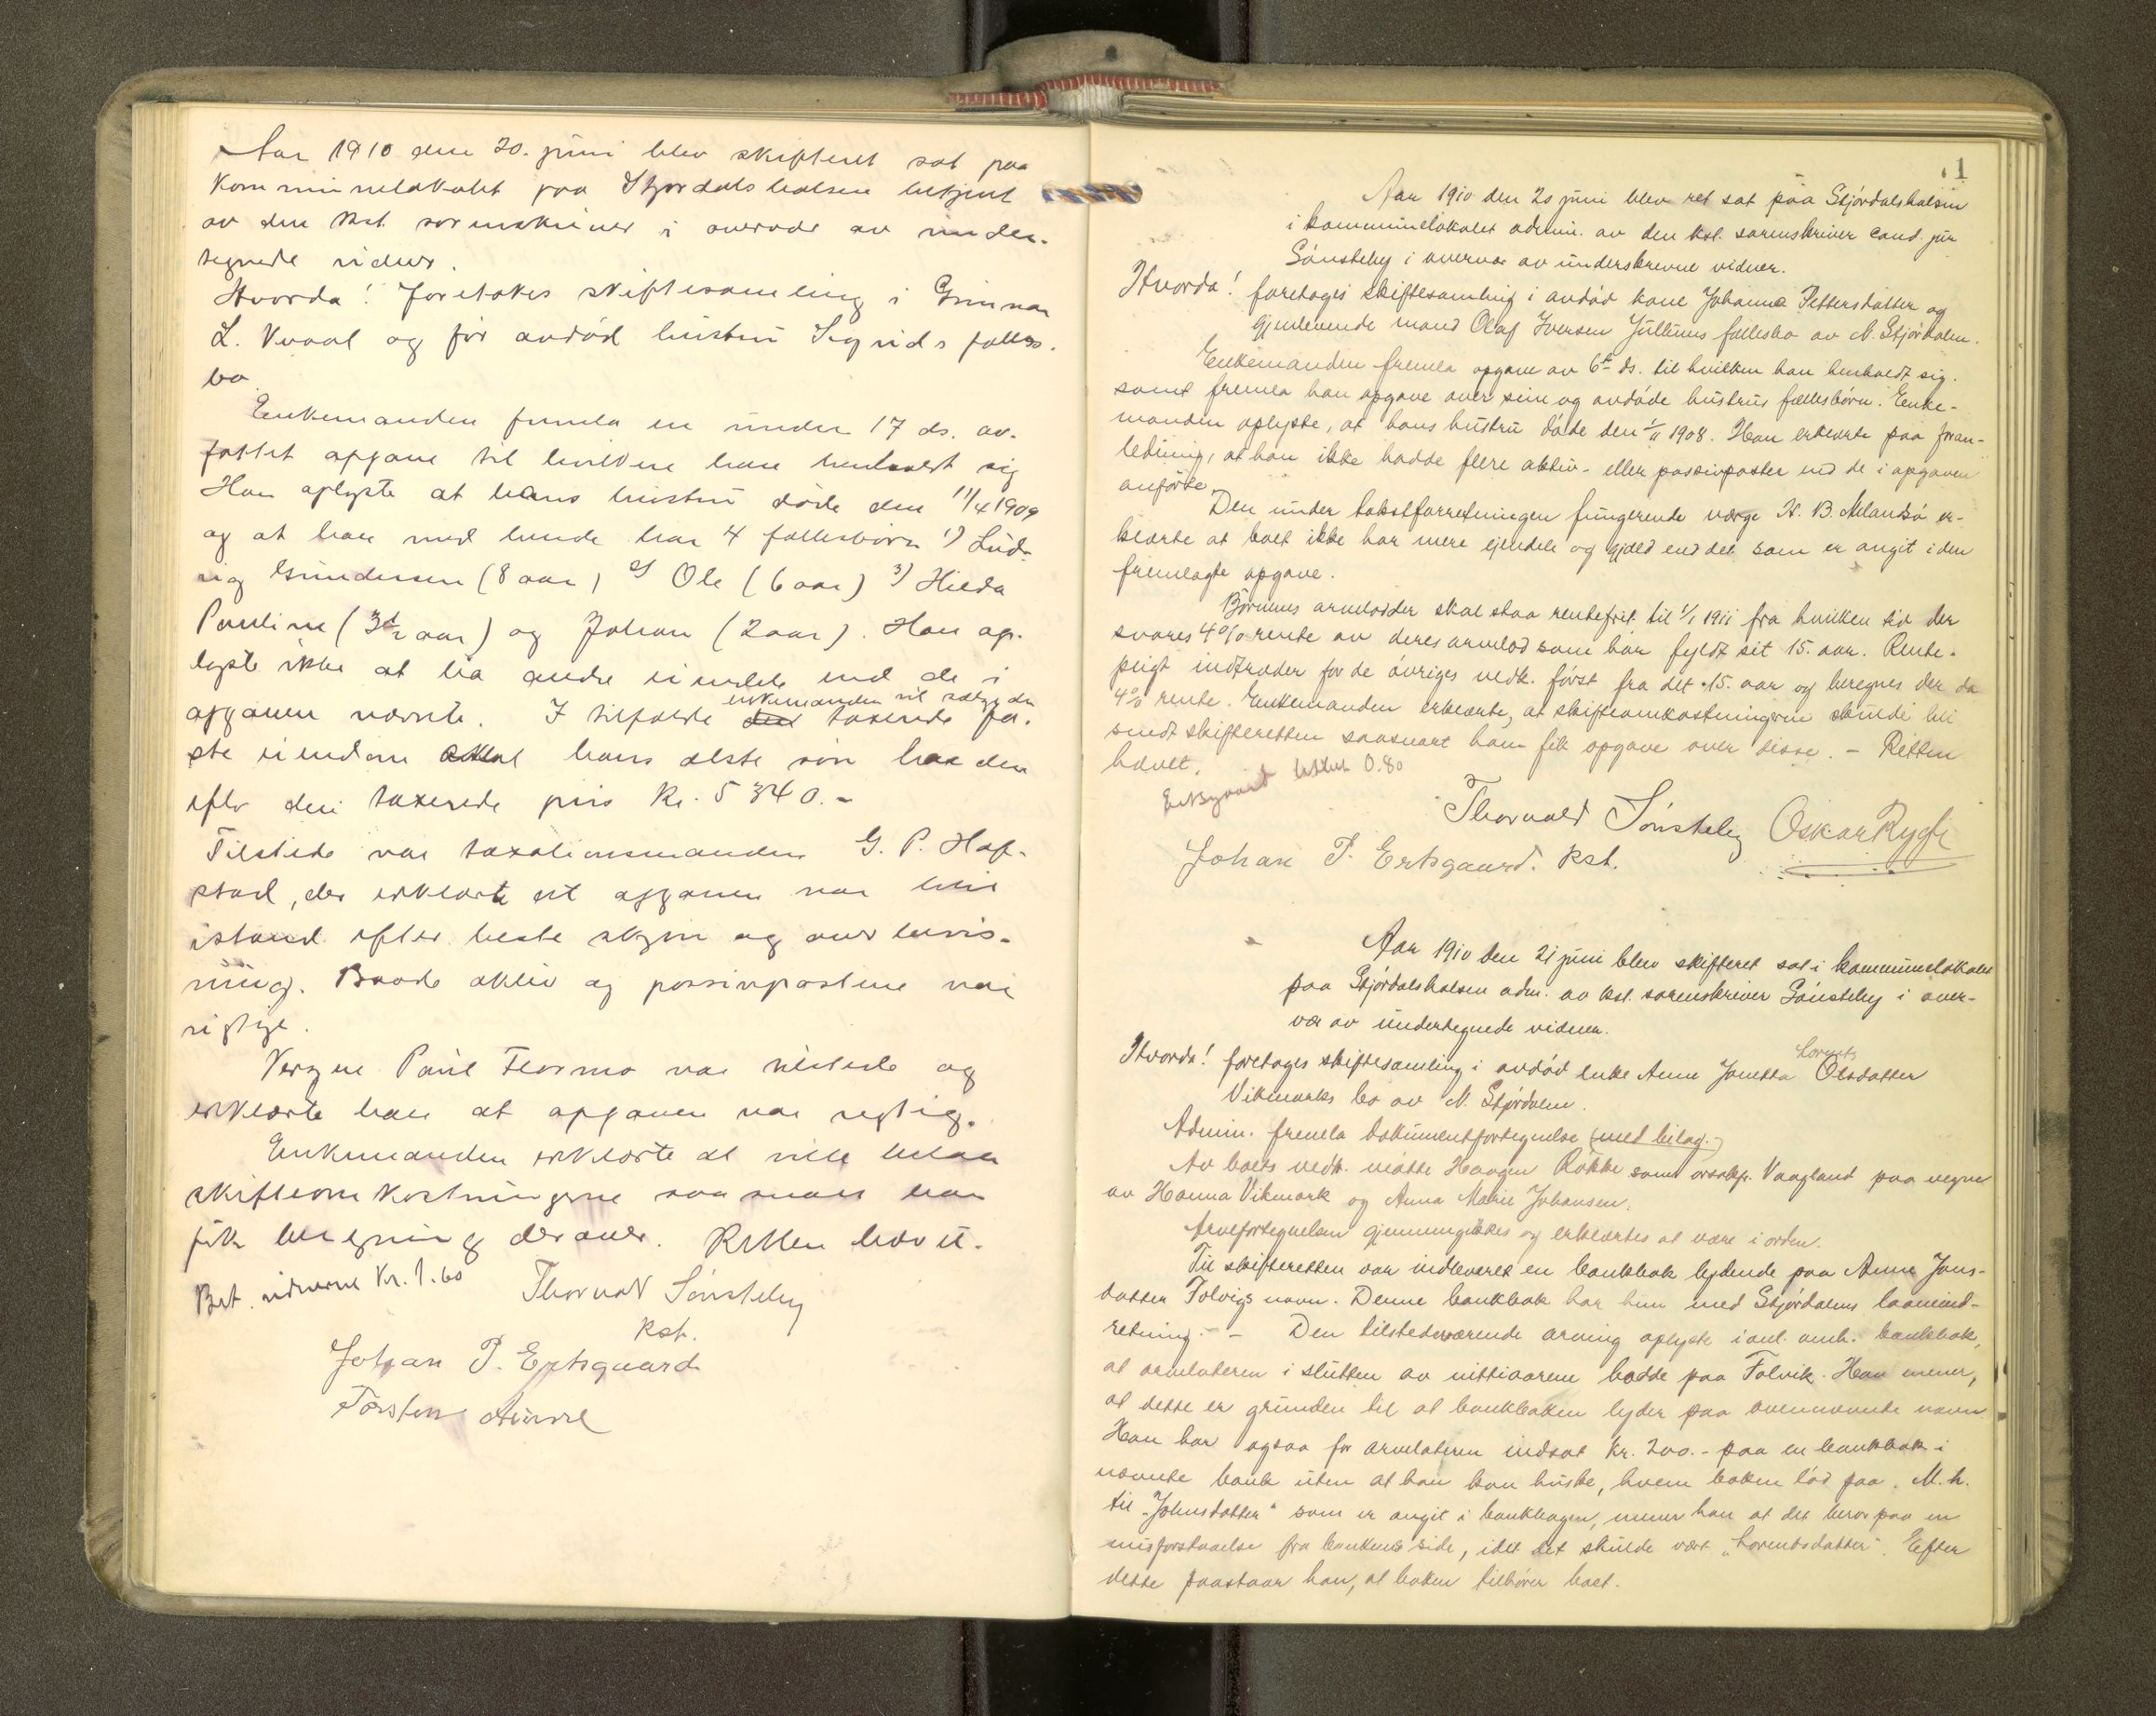 Aar 1910 den 20. juni blev skifteret sat paa
kommunelokalet paa Stjørdalshalsen betjent
av den kst. sorenskriver i overvær av under-
tegnede vidner.
Hvorda! foretokes skiftesamling i Gunnar
L. Vuaal og før avdød hustru Sigrids fælles-
bo.
Enkemanden fremla en under 17 ds. av-
fattet opgave til hvilken han henholdt sig
Han oplyste at hans hustru døde den 11/4 1909
og at han med hende har 4 fællesbørn 1) Lud-
vig Gundersen (8 aar) 2) Ole (6 aar) 3) Hilda
Pauline (3 1/2 aar) og Johan (2 aar). Han op-
lyste ikke at ha andre eiendele end de i
enkemanden vil sælge den
opgaven nævnte. I tilfælde den taxerede fa-
ste eiendom skal hans ældste søn ha den
efter den taxerede pris Kr. 5340.-
Tilstede var taxationsmanden G. P. Hof-
stad, der erklærte at opgaven var
istand efter beste skjøn og overbevis-
ning. Baade aktiv og passivpostene var
rigtige.
Vergen Paul Flormo var tilstede og
erklærte han at opgaven var rigtig.
Enkemanden erklærte at ville betale
skifteomkostningerne saasnart han
fik beregning derover. Retten hævet.
Bet. vidnerne Kr. 1.60 Thorvald Sønsteby
kst.
Johan P. Ertsgaard
Torsten
1
Aar 1910 den 20 juni blev ret sat paa Stjørdalshalsen
i kommunelokalet admin. av den kst. sorenskriver cand. jur
Sønsteby i overvær av underskrevne vidner.
Hvorda! foretages skiftesamling i avdød kone Johanna Pettersdatter og
gjenlevende mand Olaf Iversen Jullums fællesbo av N. Stjørdalen.
Enkemanden fremla opgave av 6te ds. til hvilken han henholdt sig.
samt fremla han opgave over sine og avdøde hustrus fællesbørn. Enke-
manden oplyste, at hans hustru døde den 1/11 1908. Han erklærte paa foran-
ledning, at han ikke hadde flere aktiv- eller passivposter end de i opgaven
anførte.
Den under takstforretningen fungerende værge H. B. Melandsø er-
klærte at boet ikke har mere eiendele og gjæld end det som er angit i den
fremlagte opgave.
Børnenes arvelodder skal staa rentefrit til 1/1 1911 fra hvilken tid der
svares 4% rente av deres arvelod som har fyldt sit 15. aar. Rente-
pligt indtræder for de øvriges vedk. først fra det 15. aar og beregnes der da
4% rente. Enkemanden erklærte, at skifteomkostningerne skulde bli
sendt skifteretten saasnart han fik opgave over disse. - Retten
hævet.
Ertsgaard betalt 0.80
Thorvald Sønsteby Oskar Rygh
Johan P. Ertsgaard. kst.
Aar 1910 den 21 juni blev skifteret sat i kommunelokalet
paa Stjørdalshalsen adm. av kst. sorenskriver Sønsteby i over-
vær av undertegnede vidner.
Lorents
Hvorda! foretages skiftesamling i avdød enke Anne Janetta Olsdatter
Vikmarks bo av N. Stjørdalen.
Admin. fremla dokumentfortegnelse (med bilag.-)
Av boets vedk. møtte Haagen Røkke samt ovrsakf. Vaagland paa vegne
av Hanna Vikmark og Anna Marie Johansen.
Arvefortegnelsen gjennemgikkes og erklærtes at være i orden.
Til skifteretten var indleveret en bankbok lydende paa Anne Jons-
datter Folvigs navn. Denne bankbok har hun med Stjørdalens laaneind-
retning. - Den tilstedeværende arving oplyste i anl. omh. bankbok,
at arvelateren i slutten av nittiaarene bodde paa Folvik. Han mener,
at dette er grunden til at bankboken lyder paa ovennævnte navn
Han har ogsaa for arvelateren indsat kr. 200.- paa en bankbok i
nævnte bank uten at han kan huske, hvem boken lød paa. M. h.
til "Johnsdatter" som er angit i bankbogen, mener han at det beror paa en
misforstaaelse fra bankens side, idet det skulde vært "Lorentsdatter". Efter
dette paastaar han, at boken tilhører boet.